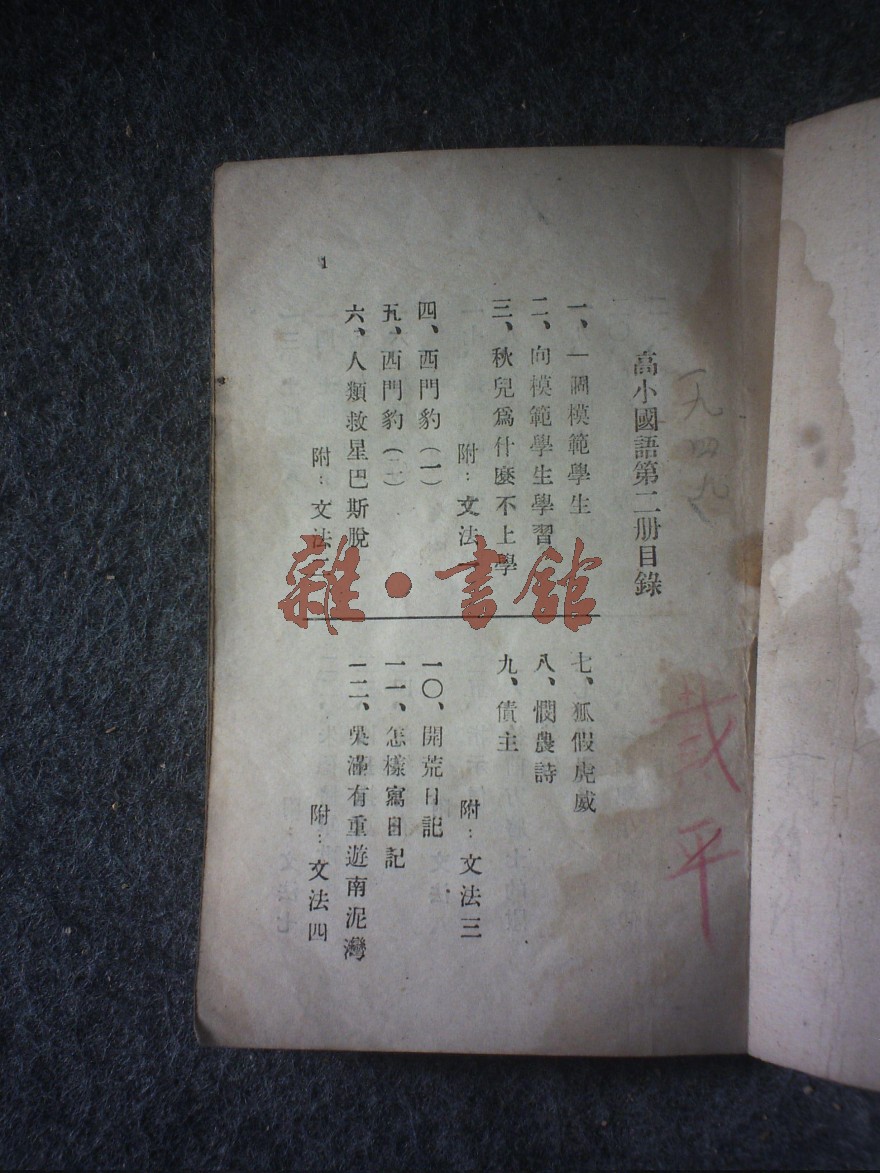 一九四九
高小國語第二册目錄
一、一個模範學生
二、向模範學生學習
三、秋兒爲什麼不上學
附：文法一
四、西門豹（一）
五、西門豹（二）
六、人類救星巴斯脫
附：文法二
七、狐假虎威
八、憫農詩
九、債主
附：文法三
一〇、開荒日記
一一、怎樣寫日記
一二、吳滿有重遊南泥灣
附：文法四
1
平
雜·書館